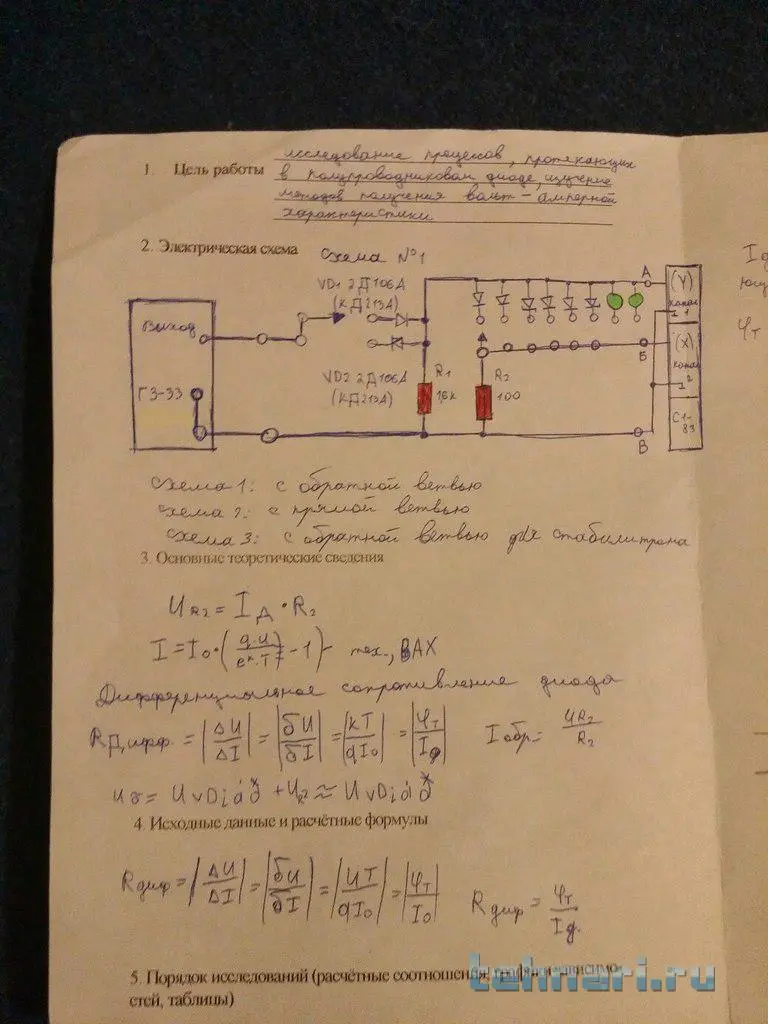 1. Цель работы исследование процессов, протекающих
в полупроводниковом диоде, изучение
методов получения вольт-амперной
характеристики
2. Электрическая схема Схема №1
VD1 2Д106А
(КД213А)
Выход
ГЗ-33
VD2 2Д106А
(КД213А)
R1
1,6к
R2
100
А
Б
В
(Y)
канал
1
(X)
канал
2
С1-
83
Схема 1: с обратной ветвью
Схема 2: с прямой ветвью
Схема 3: с обратной ветвью для стабилитрона
3. Основные теоретические сведения
U R2 = I Д • R2
I = I0 · (q.u/eк.T - 1) - тех., ВАХ
Дифференциальное сопротивление диода
RДифф. = |ΔU/ΔI| = |δU/δI| = |kT/qI0| = |φT/Iд| Iобр = UR2/R2
4. Исходные данные и расчётные формулы
Rдиф = |ΔU/ΔI| = |δU/δI| = |UT/qI0| = |φT/I0| Rдиф = φT/Iд.
5. Порядок исследований (расчётные соотношения,
стей, таблицы)
tehnari.ru
Iд
φT